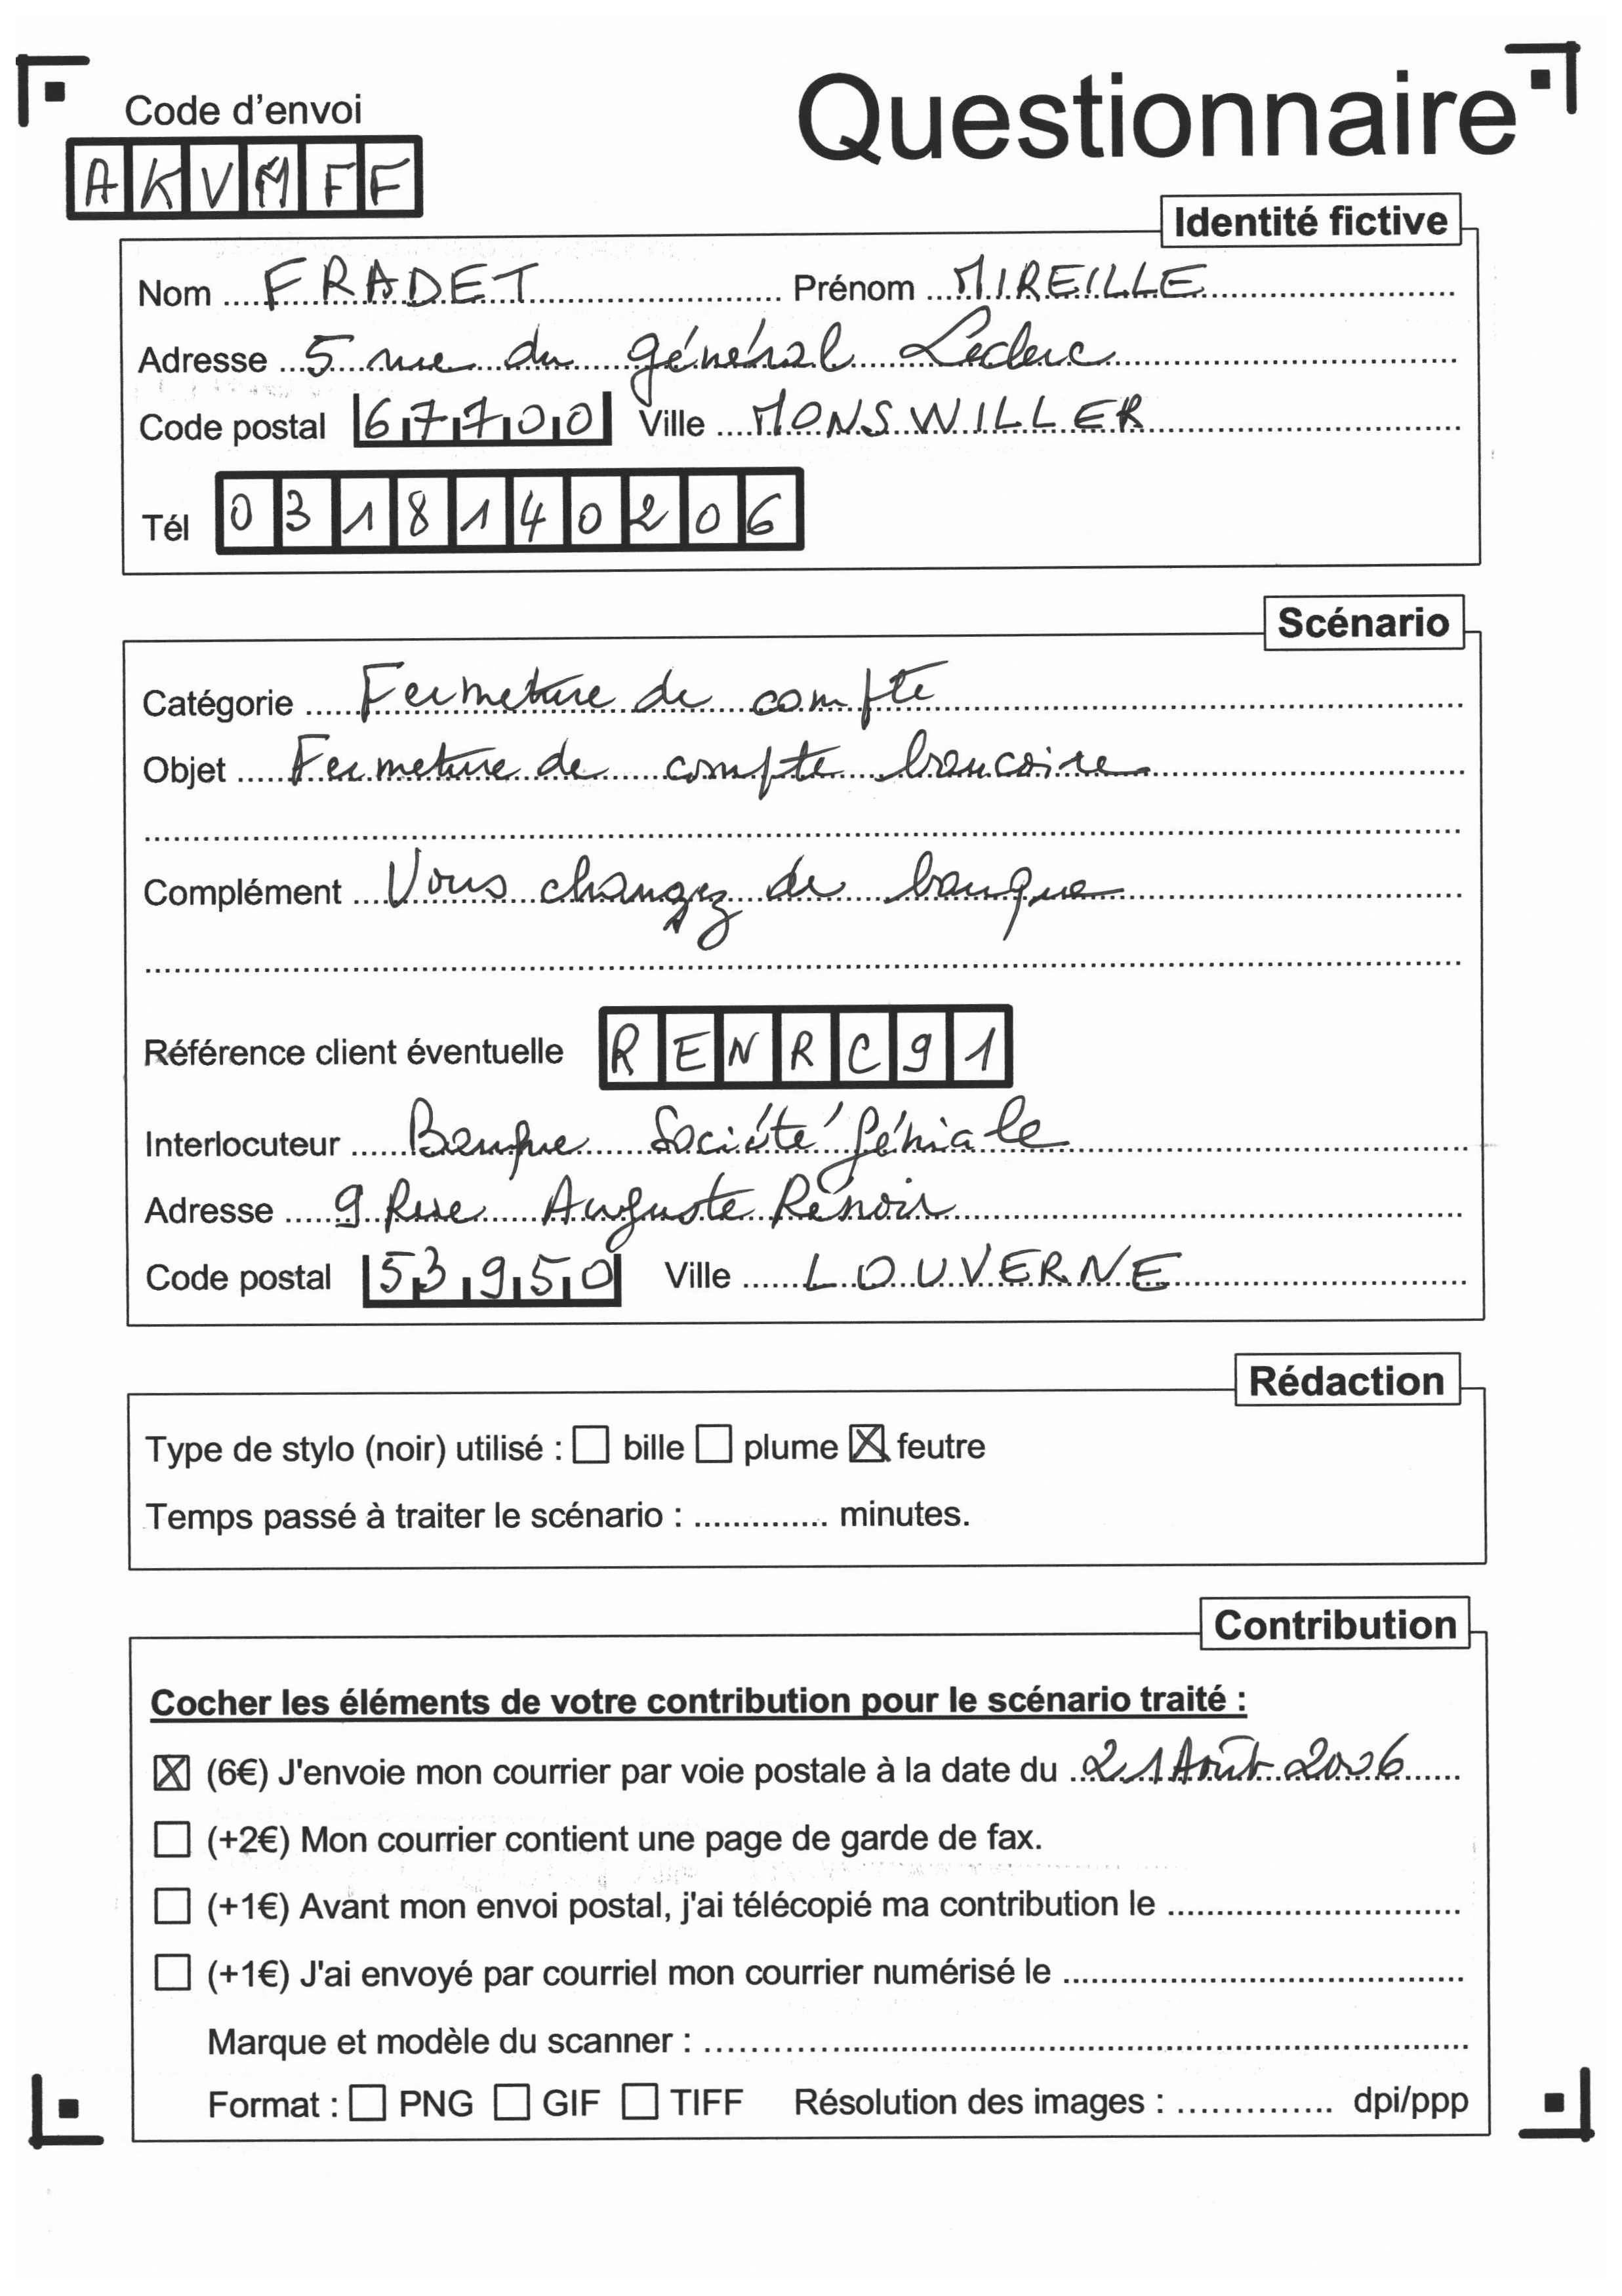 Code d'envoi
Questionnaire
AKVMFF
Identité fictive
Nom FRADET Prénom MIREILLE
Adresse 5 rue du général Leclerc
Code postal 67700 Ville MONSWILLER
Tél 0318140206
Scénario
Catégorie Fermeture de compte
Objet Fermeture de compte bancaire
Complément Vous changez de banque
Référence client éventuelle RENRC91
Interlocuteur Banque Société Géniale
Adresse 9 Rue Auguste Renoir
Code postal 53950 Ville LOUVERNE
Rédaction
Type de stylo (noir) utilisé : ☐ bille ☐ plume ☒ feutre
Temps passé à traiter le scénario : .............. minutes.
Contribution
Cocher les éléments de votre contribution pour le scénario traité :
☒ (6€) J'envoie mon courrier par voie postale à la date du 21 Août 2006
☐ (+2€) Mon courrier contient une page de garde de fax.
☐ (+1€) Avant mon envoi postal, j'ai télécopié ma contribution le ..............................
☐ (+1€) J'ai envoyé par courriel mon courrier numérisé le ..............................
Marque et modèle du scanner : ..............................
Format : ☐ PNG ☐ GIF ☐ TIFF Résolution des images : .............. dpi/ppp